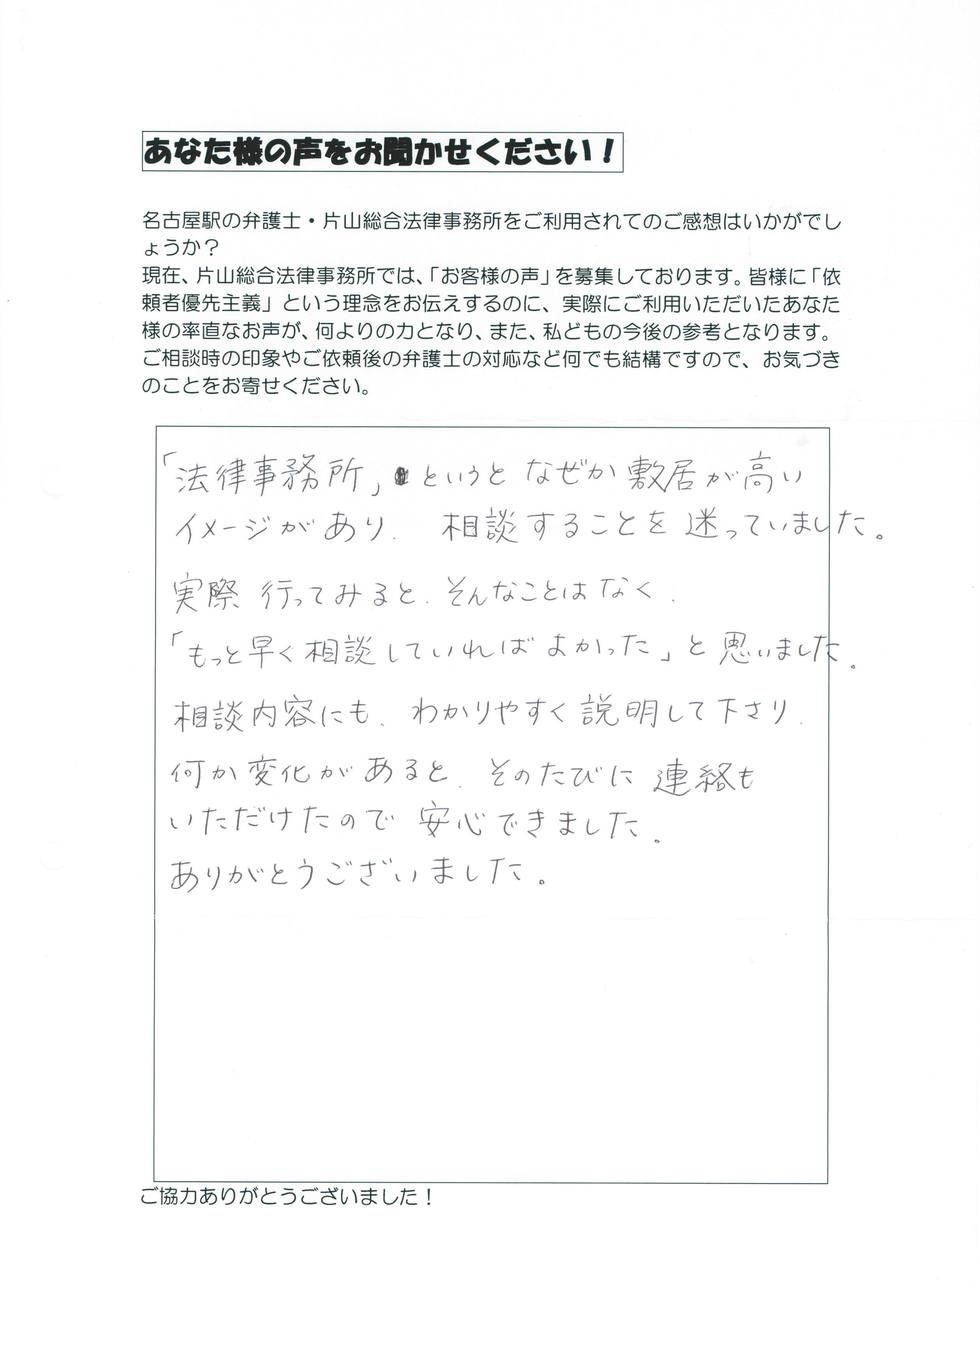 あなた様の声をお聞かせください！
名古屋駅の弁護士・片山総合法律事務所をご利用されてのご感想はいかがでし
ょうか？
現在、片山総合法律事務所では、「お客様の声」を募集しております。皆様に「依
頼者優先主義」という理念をお伝えするのに、実際にご利用いただいたあなた
様の率直なお声が、何よりの力となり、また、私どもの今後の参考となります。
ご相談時の印象やご依頼後の弁護士の対応など何でも結構ですので、お気づき
のことをお寄せください。
「法律事務所」というとなぜか敷居が高い
イメージがあり、相談することを迷っていました。
実際行ってみると、そんなことはなく、
「もっと早く相談していればよかった」と思いました。
相談内容にも、わかりやすく説明して下さり、
何か変化があると、そのたびに連絡も
いただけたので安心できました。
ありがとうございました。
ご協力ありがとうございました！